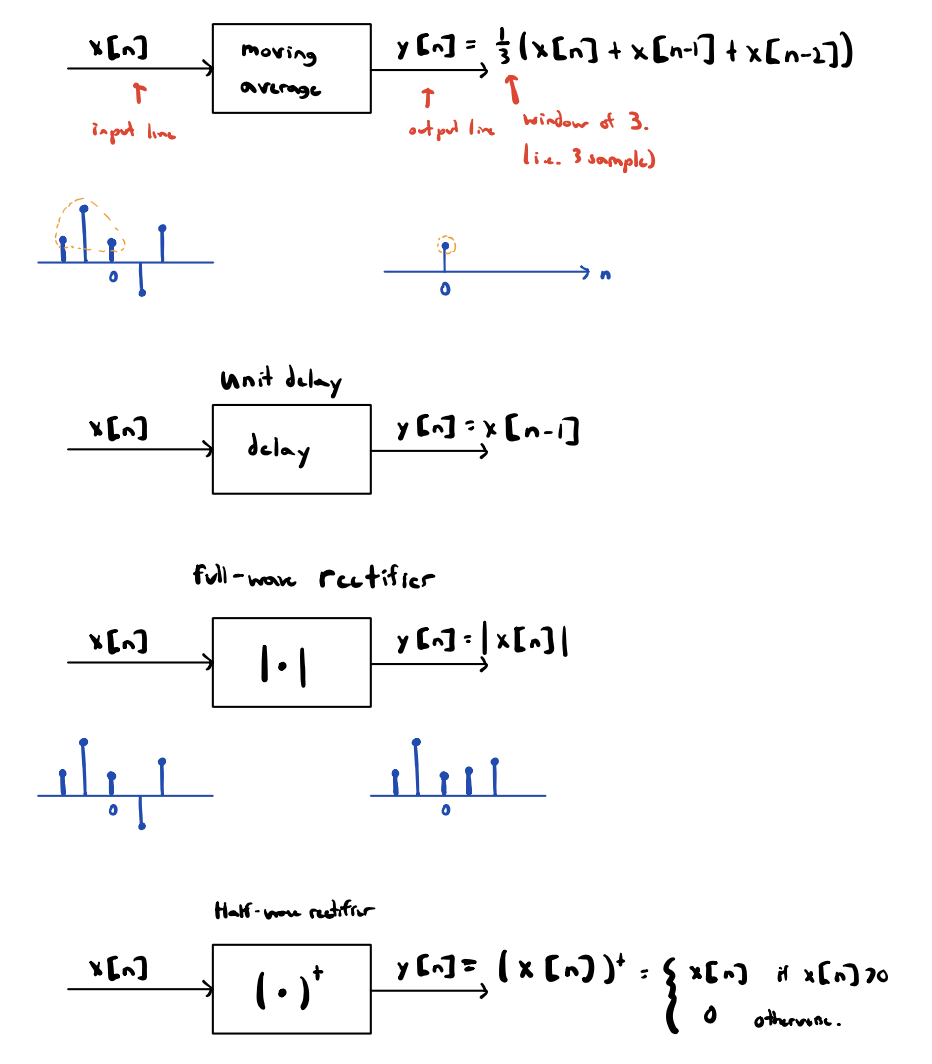 x[n]
moving
average
y[n] = 1/3 (x[n] + x[n-1] + x[n-2])
input line
output line
window of 3.
(i.e. 3 sample)
0
0
n
unit delay
x[n]
delay
y[n] = x[n-1]
full-wave rectifier
x[n]
|·|
y[n] = |x[n]|
0
0
Half-wave rectifier
x[n]
(·)⁺
y[n] = (x[n])⁺ = { x[n] if x[n]>0
0 otherwise.